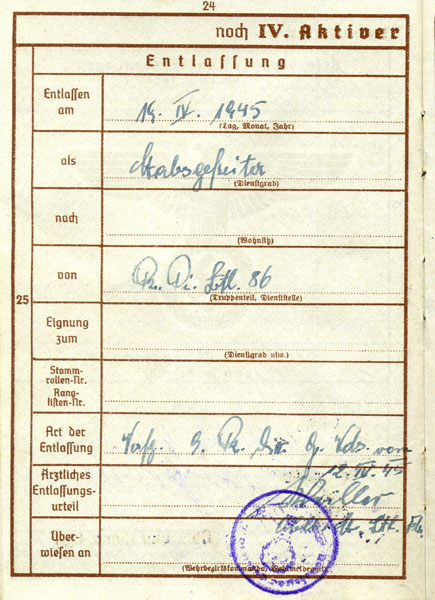 24
noch IV. Aktiver
Entlassung
Entlassen am
19. IV. 1945
(Tag, Monat, Jahr)
als
Stabsgefreiter
(Dienstgrad)
nach
(Wohnsitz)
25
von
Pz. Di. 86
(Truppenteil, Dienststelle)
Eignung
zum
(Dienstgrad usw.)
Stamm-
rollen-Nr.
Rang-
listen-Nr.
Art der
Entlassung
Verfg. d. Pz. Div. vom
12. IV. 45
Ärztliches
Entlassungs-
urteil
Über-
wiesen an
(Wehrbezirkskommando, Wehrmeldeamt)